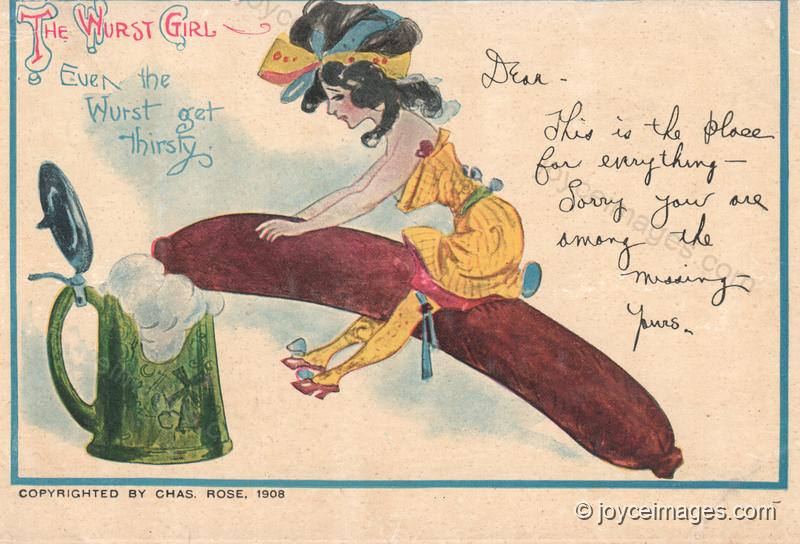 The Wurst Girl
Even the
Wurst get
thirsty.
Dear -
This is the place
for everything -
Sorry you are
among the
missing -
Yours.
COPYRIGHTED BY CHAS. ROSE, 1908
© joyceimages.com